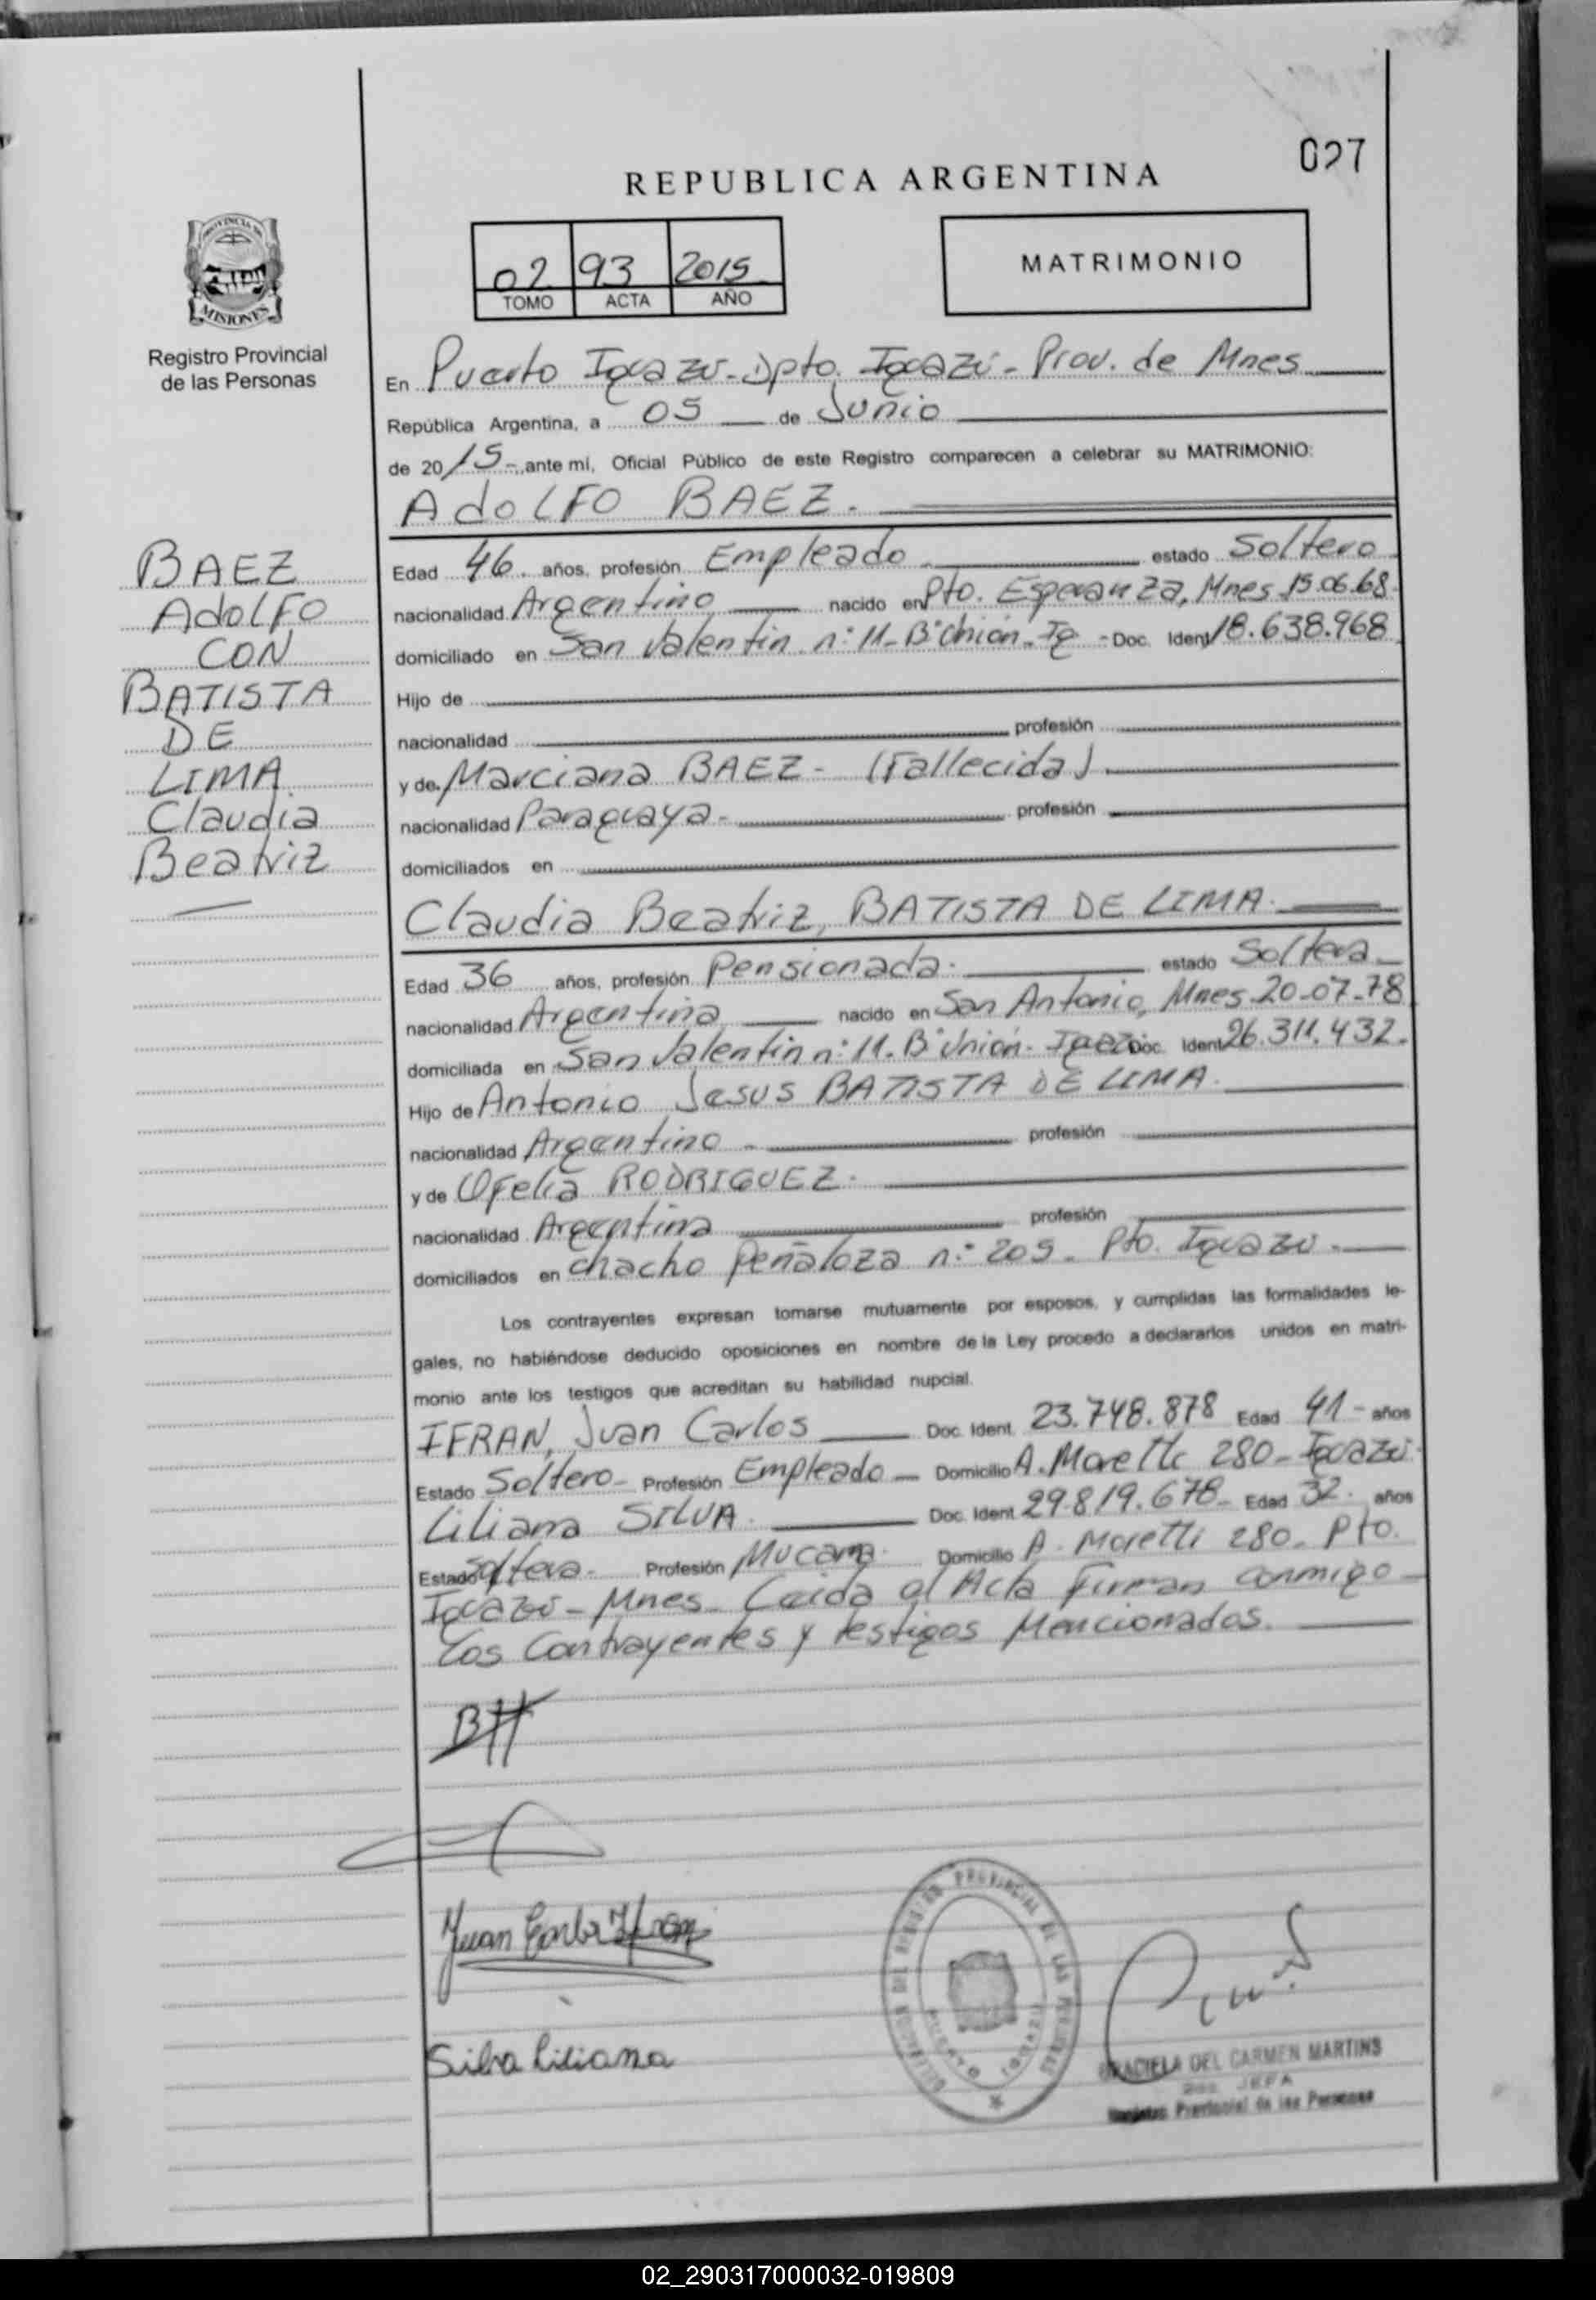 027
REPUBLICA ARGENTINA
02 93 2015
TOMO ACTA AÑO
MATRIMONIO
PROVINCIA DE
MISIONES
Registro Provincial
de las Personas
En Puerto Iguazú - Dpto. Iguazú - Prov. de Mnes
República Argentina, a 05 de Junio
de 2015 - ante mí, Oficial Público de este Registro comparecen a celebrar su MATRIMONIO:
AdoLFO BAEZ.
BAEZ
AdoLFO
CON
BATISTA
DE
LIMA
Claudia
Beatriz
Edad 46. años, profesión Empleado estado Soltero
nacionalidad Argentino nacido en Pto. Esperanza, Mnes 15.06.68
domiciliado en San Valentin n: 11 - B° Unión - Ig - Doc. Ident 18.638.968
Hijo de
nacionalidad profesión
y de Marciana BAEZ - (Fallecida)
nacionalidad Paraguaya - profesión
domiciliados en
Claudia Beatriz, BATISTA DE LIMA.
Edad 36 años, profesión Pensionada. estado Soltera
nacionalidad Argentina nacido en San Antonio, Mnes 20-07-78
domiciliada en San Valentin n: 11. B° Unión - Doc. Ident 26.311.432.
Hijo de Antonio Jesus BATISTA DE LIMA.
nacionalidad Argentino - profesión
y de Ofelia RODRIGUEZ.
nacionalidad Argentina profesión
domiciliados en Chacho Peñaloza n: 209 - Pto. Iguazú.
Los contrayentes expresan tomarse mutuamente por esposos, y cumplidas las formalidades le-
gales, no habiéndose deducido oposiciones en nombre de la Ley procedo a declararlos unidos en matri-
monio ante los testigos que acreditan su habilidad nupcial.
IFRAN, Juan Carlos Doc. Ident. 23.748.878 Edad 41 - años
Estado Soltero - Profesión Empleado - Domicilio A. Moretti 280 - Iguazú.
Liliana SILVA. Doc. Ident 29.819.678 - Edad 32. años
Estado Soltera - Profesión Mucama. Domicilio A. Moretti 280. Pto.
Iguazú - Mnes - Leida el Acta Firman conmigo
Los Contrayentes y testigos Mencionados.
Juan Carlos Ifran
Silva Liliana
DELEGACION DEL REGISTRO PROVINCIAL DE LAS PERSONAS
PUERTO IGUAZU
GRACIELA DEL CARMEN MARTINS
JEFA
Registro Provincial de las Personas
02_290317000032-019809